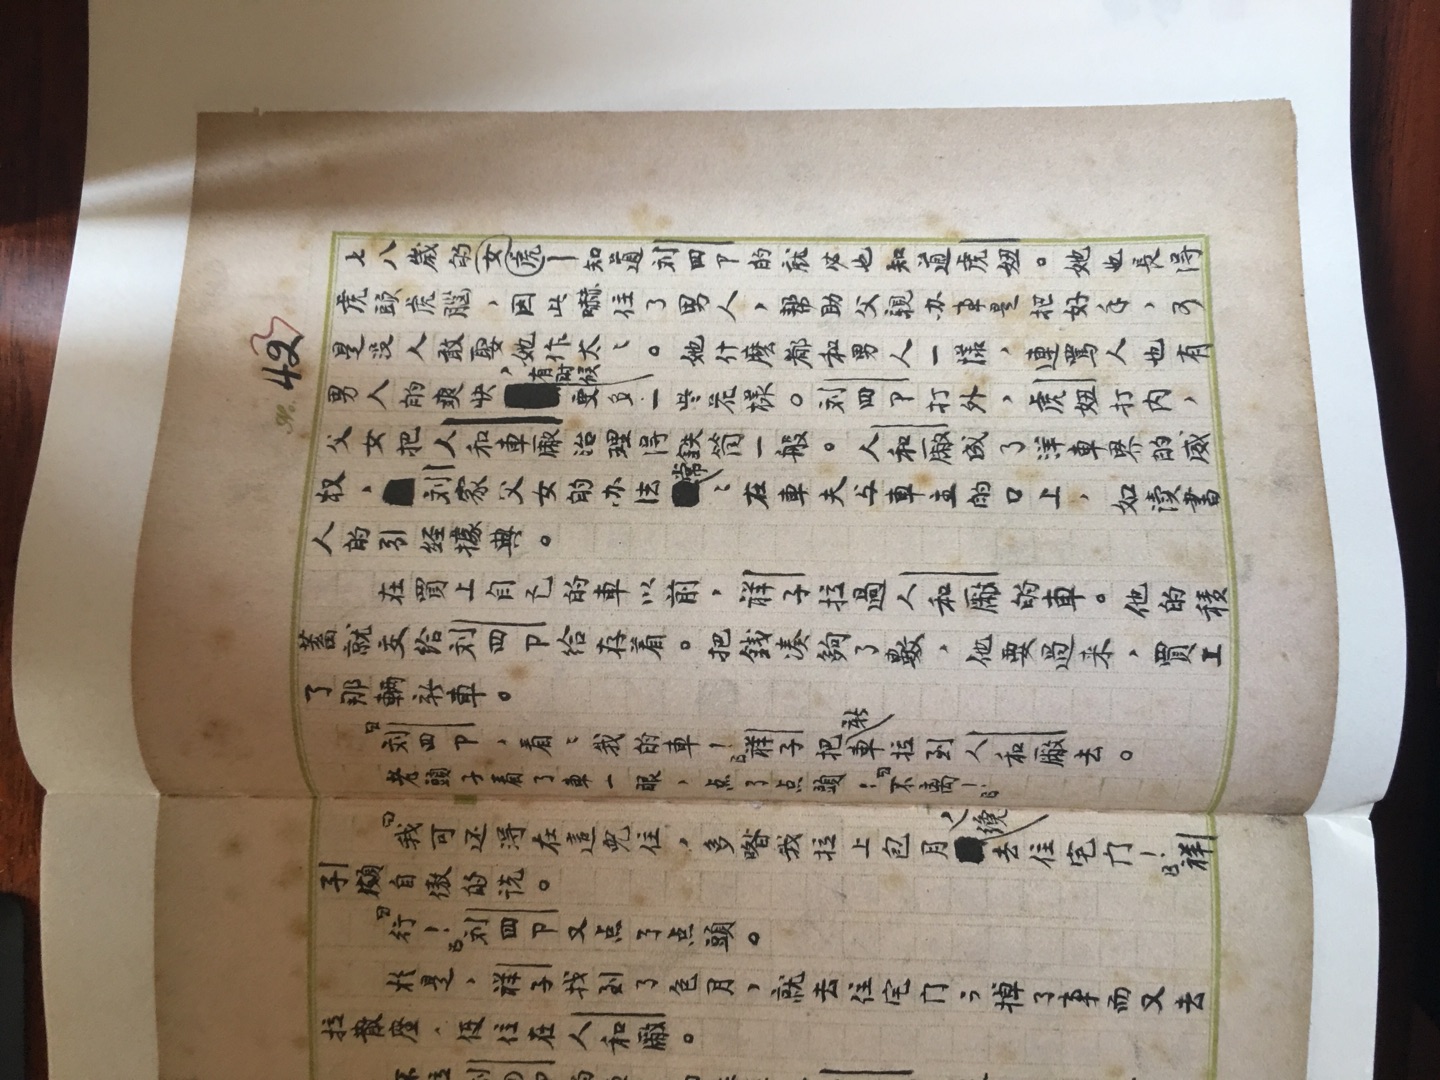 No. 42
七八歲的女虎—知道刘四卩的就必也知道虎妞。她也長得
虎頭虎腦，因此嚇住了男人，帮助父親办事是把好手，可
是沒人敢要她作太〻。她什麽都和男人一樣，連罵人也有
男人的爽快，有时候更多一些花樣。刘四卩打外，虎妞打内，
父女把人和車廠治理得鉄筒一般。人和廠成了洋車界的威
权，刘家父女的办法常〻在車夫与車主的口上，如读書
人的引经據典。
在買上自己的車以前，祥子拉過人和廠的車。他的積
蓄就交给刘四卩给存着。把錢凑夠了數，他要過来，買上
了那輛新車。
『刘四卩，看〻我的車！』祥子把新車拉到人和廠去。
老頭子看了車一眼，点了点頭：『不离！』
『我可还得在這兒住，多喒我拉上包月，纔去住宅门！』祥
子頗自傲的说。
『行！』刘四卩又点了点頭。
於是，祥子找到了包月，就去住宅门；掉了事而又去
拉散座，便住在人和廠。